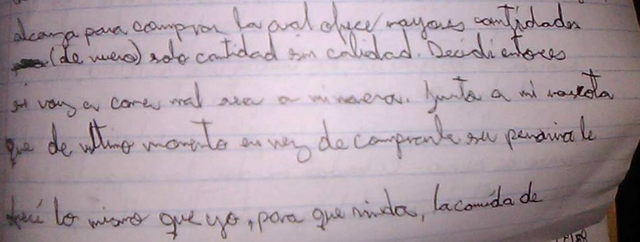 alcanza para comprar la cual ofrece mayores cantidades
(de nuevo) solo cantidad sin calidad. Decidi entonces
si voy a comer mal sea a mi manera. Junto a mi mascota
que de ultimo momento en vez de comprarle su le
lo mismo que yo, para que rinda, la comida de